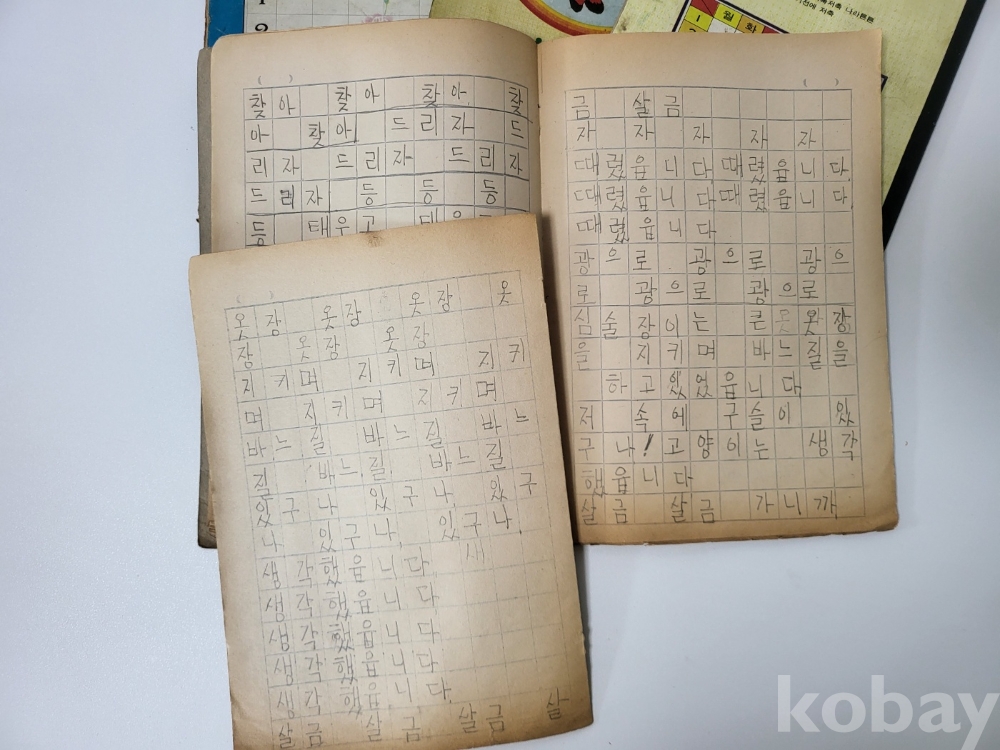 1
2
저축 나라튼튼
전에 저축
1 월 화
( )
찾아 찾아 찾아 찾
아 찾아 드리자 드
리자 드리자 드리자
드리자 등 등 등
등 태우고
( )
금 살금
자 자 자 자 자
때렸읍니다 때렸읍니다.
때렸읍니다 때렸읍니다.
때렸읍니다
광으로 광으로 광으
로 광으로 광으로
심술장이는 큰 옷장
을 지키며 바느질을
하고 있었읍니다.
저 속에 구슬이 있
구나! 고양이는 생각
했읍니다
살금 살금 가니까
( )
옷장 옷장 옷장 옷
장 옷장 옷장
지키며 지키며 지키
며 지키며 지키며
바느질 바느질 바느
질 바느질 바느질
있구나 있구나. 있구
나 있구나. 있구나.
생각했읍니다. 새
생각했읍니다
생각했읍니다
생각했읍니다
생각했읍니다.
살금 살금 살금 살
kobay